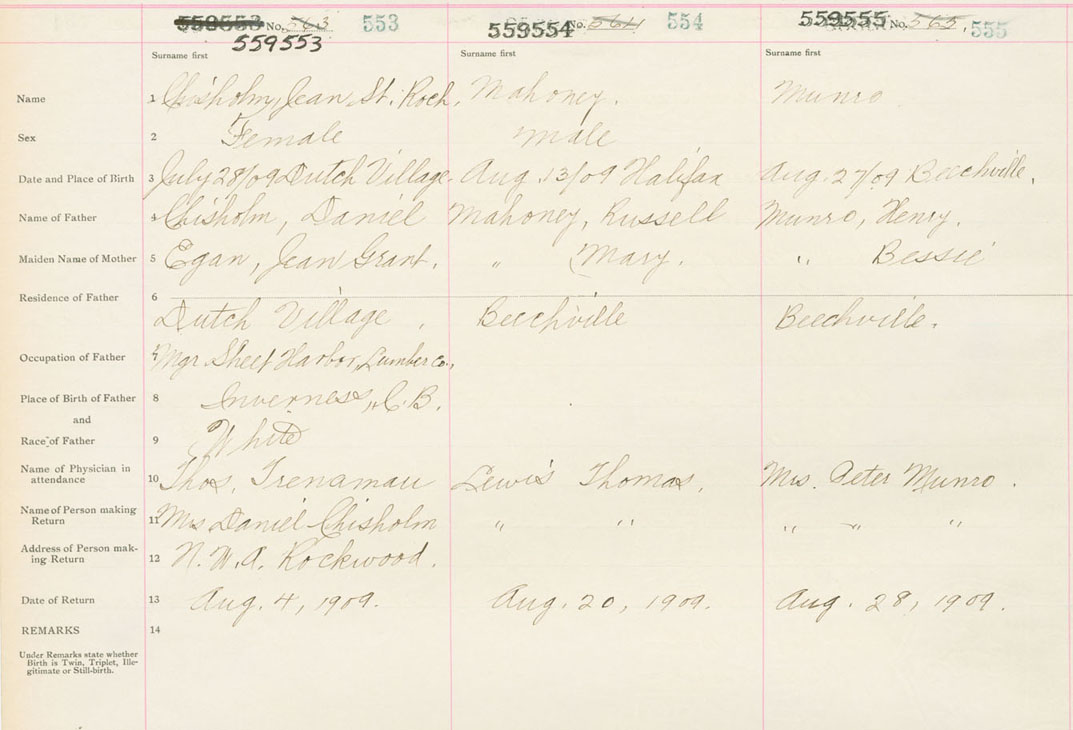 559553 No. 563 553 559554 No. 564 554 559555 No. 565, 555
559553
Surname first Surname first Surname first
Name 1 Chisholm, Jean St. Roch, Mahoney. Munro
Sex 2 Female Male
Date and Place of Birth 3 July 28/09 Dutch Village. Aug. 13/09 Halifax Aug. 27/09 Beechville.
Name of Father 4 Chisholm, Daniel Mahoney, Russell Munro, Henry.
Maiden Name of Mother 5 Egan, Jean Grant. " Mary. " Bessie
Residence of Father 6
Dutch Village. Beechville Beechville.
Occupation of Father 7 Mgr Sheet Harbor, Lumber Co.,
Place of Birth of Father 8 Inverness, C.B.
and
Race of Father 9 White
Name of Physician in
attendance 10 Thos. Trenaman Lewis Thomas. Mrs. Peter Munro.
Name of Person making
Return 11 Mrs Daniel Chisholm " " " " "
Address of Person mak-
ing Return 12 N.W.A. Rockwood.
Date of Return 13 Aug. 4, 1909. Aug. 20, 1909. Aug. 28, 1909.
REMARKS 14
Under Remarks state whether
Birth is Twin, Triplet, Ille-
gitimate or Still-birth.